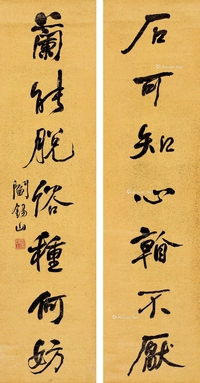 石可知心翰不厭
蘭能脫俗種何妨
閻錫山